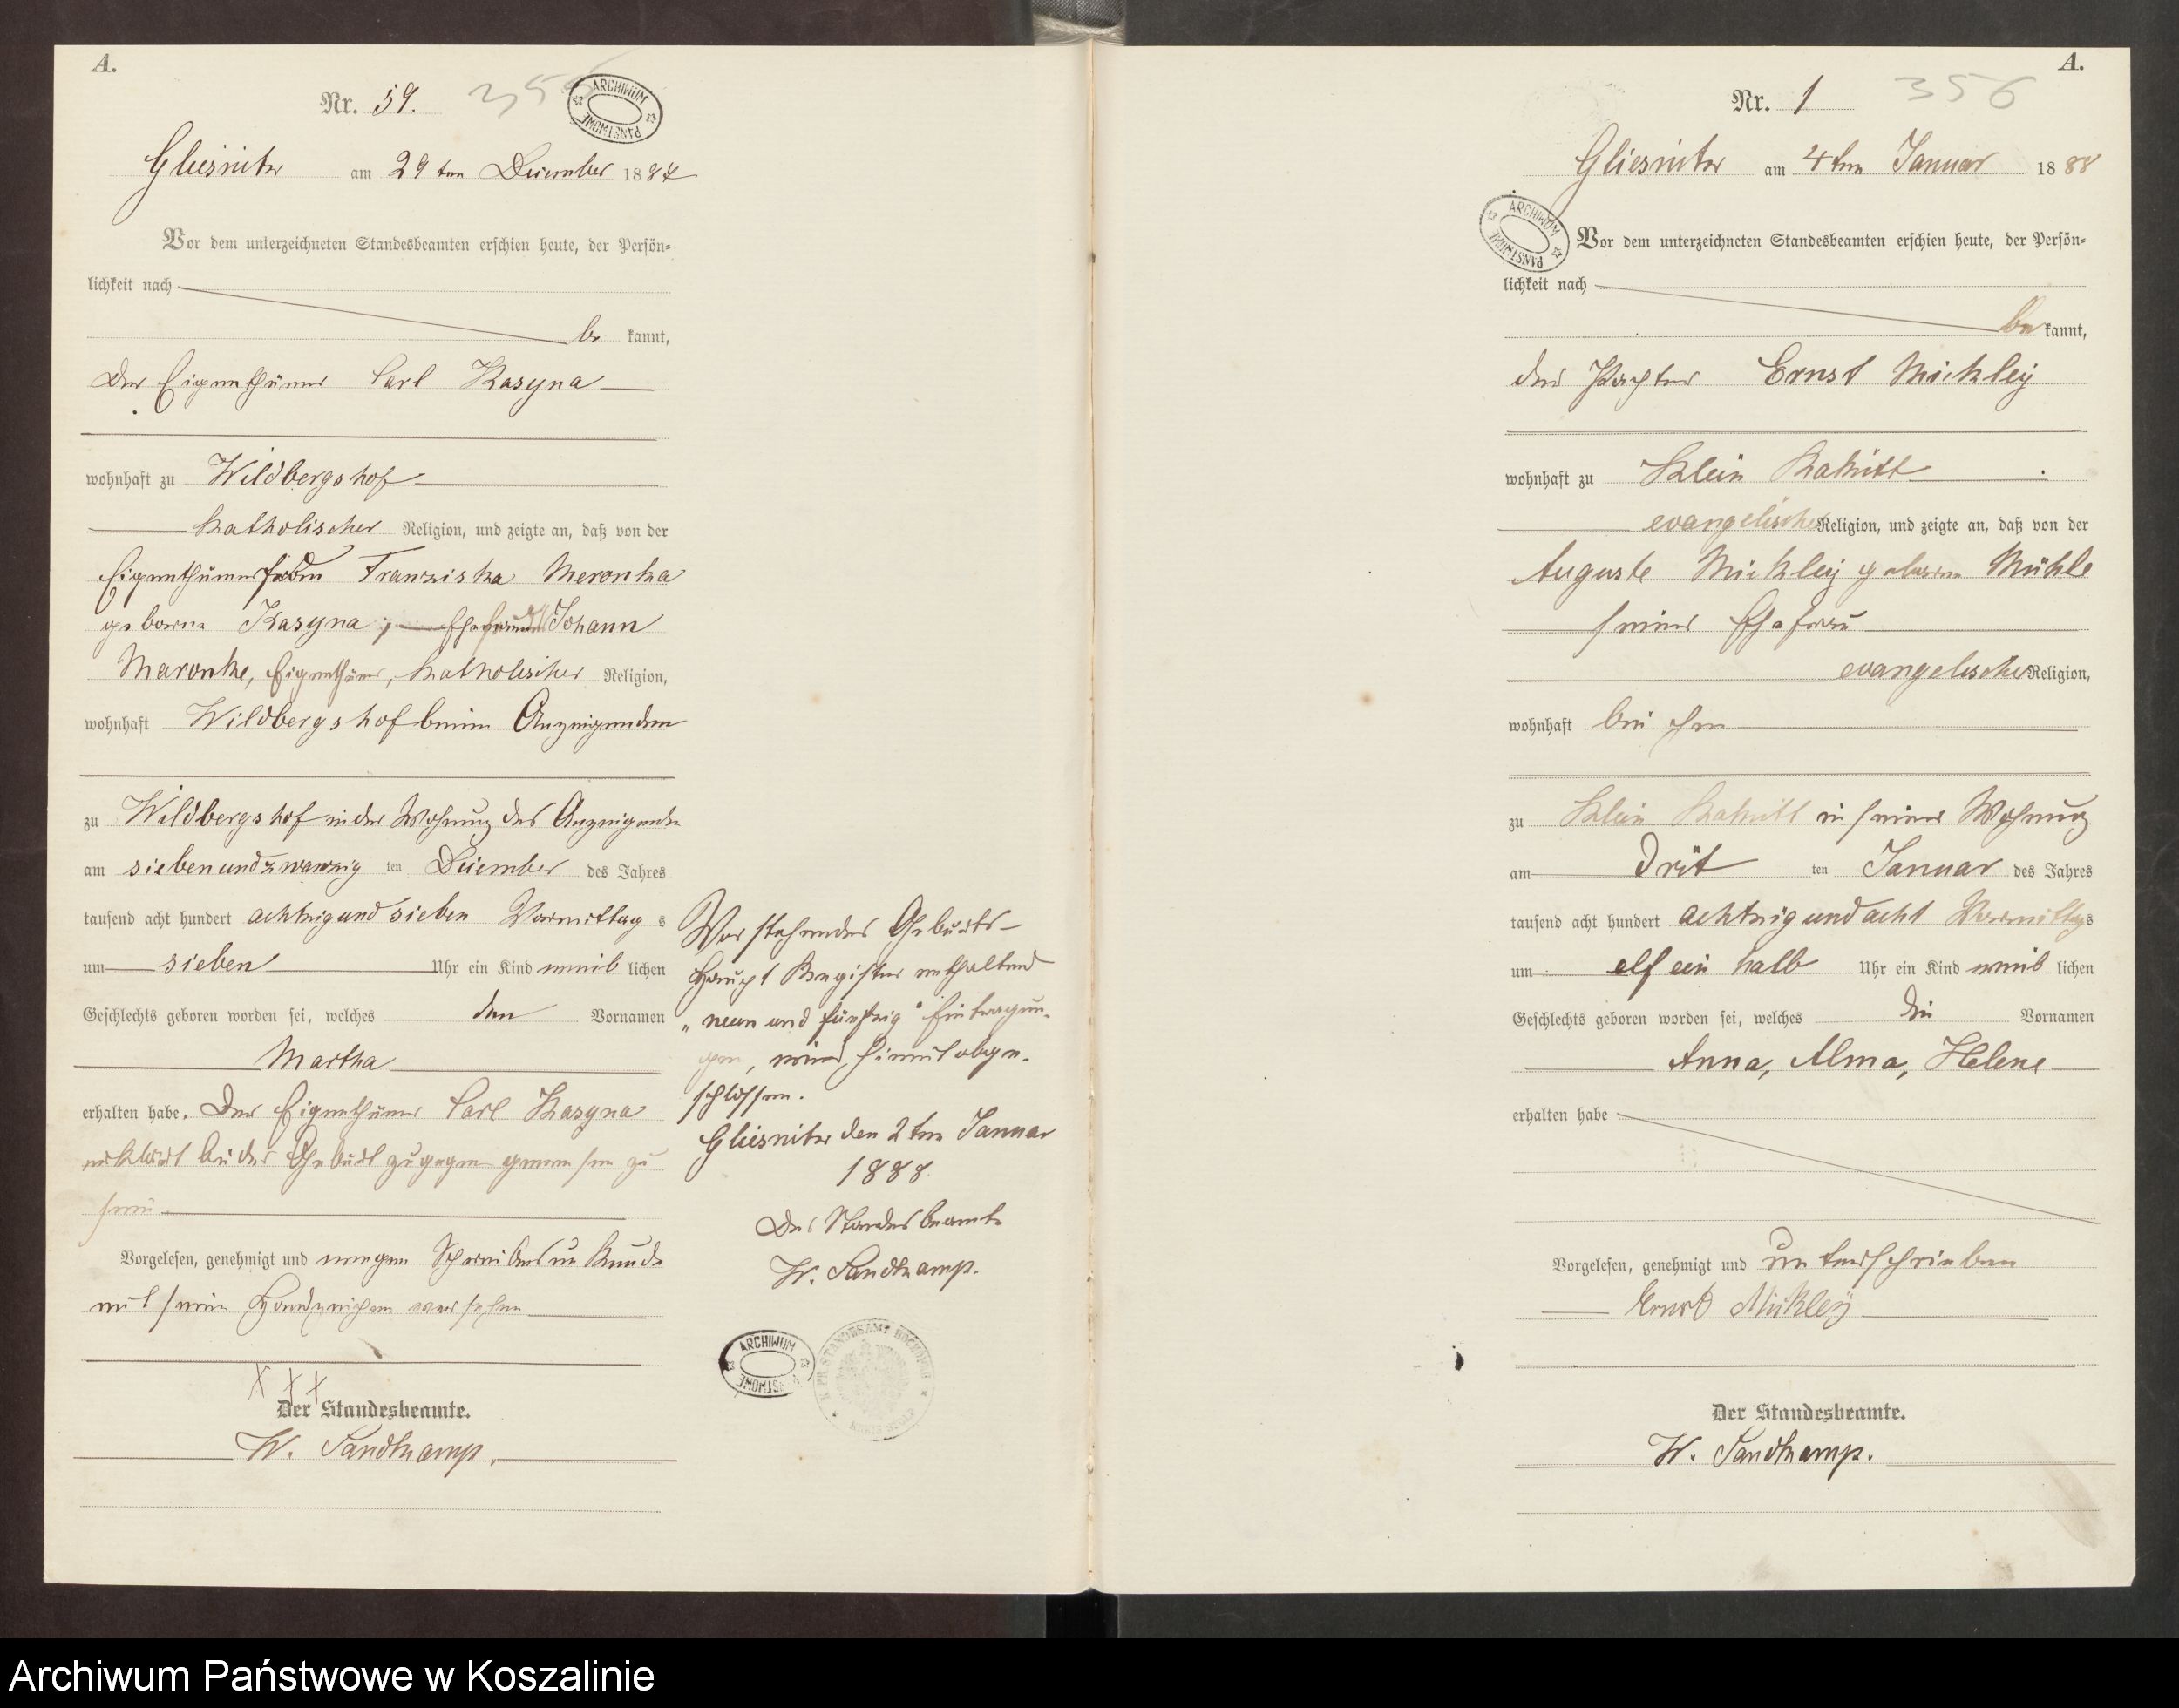 A.
Nr. 59.
Gliesnitz am 29ten Dezember 1887
Vor dem unterzeichneten Standesbeamten erschien heute, der Persön=
lichkeit nach
be kannt,
der Eigenthümer Carl Kasyna
wohnhaft zu Wildbergshof
katholischer Religion, und zeigte an, daß von der
Eigenthümerfrau Franziska Meronka
geborne Kasyna, Ehefrau Johann
Maronke, Eigenthümer, katholischer Religion,
wohnhaft Wildbergshof beim Anzeigenden
zu Wildbergshof in der Wohnung des Anzeigenden
am siebenundzwanzig ten Dezember des Jahres
tausend acht hundert achtzig und sieben Vormittag s
um sieben Uhr ein Kind weib lichen
Geschlechts geboren worden sei, welches den Vornamen
Martha
erhalten habe. Der Eigenthümer Carl Kasyna
erklärt bei der Geburt zugegen gewesen zu
sein
Vorgelesen, genehmigt und wegen Schreibensunkunde
mit seinem Handzeichen versehen
X X X
Der Standesbeamte.
W. Sandkamp.
Vorstehendes Geburts-
Haupt Register enthaltend
"neun und fünfzig" Eintragun-
gen, wird hiermit abge-
schlossen.
Gliesnitz den 2ten Januar
1888.
Der Standesbeamte
W. Sandkamp.
ARCHIWUM PAŃSTWOWE
A.
Nr. 1
356
Gliesnitz am 4ten Januar 1888
ARCHIWUM PAŃSTWOWE
Vor dem unterzeichneten Standesbeamten erschien heute, der Persön=
lichkeit nach
be kannt,
der Pächter Ernst Mickley
wohnhaft zu Klein
evangelischer Religion, und zeigte an, daß von der
Auguste Mickley geborne Mühle
seiner Ehefrau
evangelischer Religion,
wohnhaft bei ihm
zu Klein in seiner Wohnung
am drit ten Januar des Jahres
tausend acht hundert achtzig und acht Vormittags
um elf ein halb Uhr ein Kind weib lichen
Geschlechts geboren worden sei, welches die Vornamen
Anna, Alma, Helene
erhalten habe
Vorgelesen, genehmigt und unterschrieben
Ernst Mickley
Der Standesbeamte.
W. Sandkamp.
Archiwum Państwowe w Koszalinie